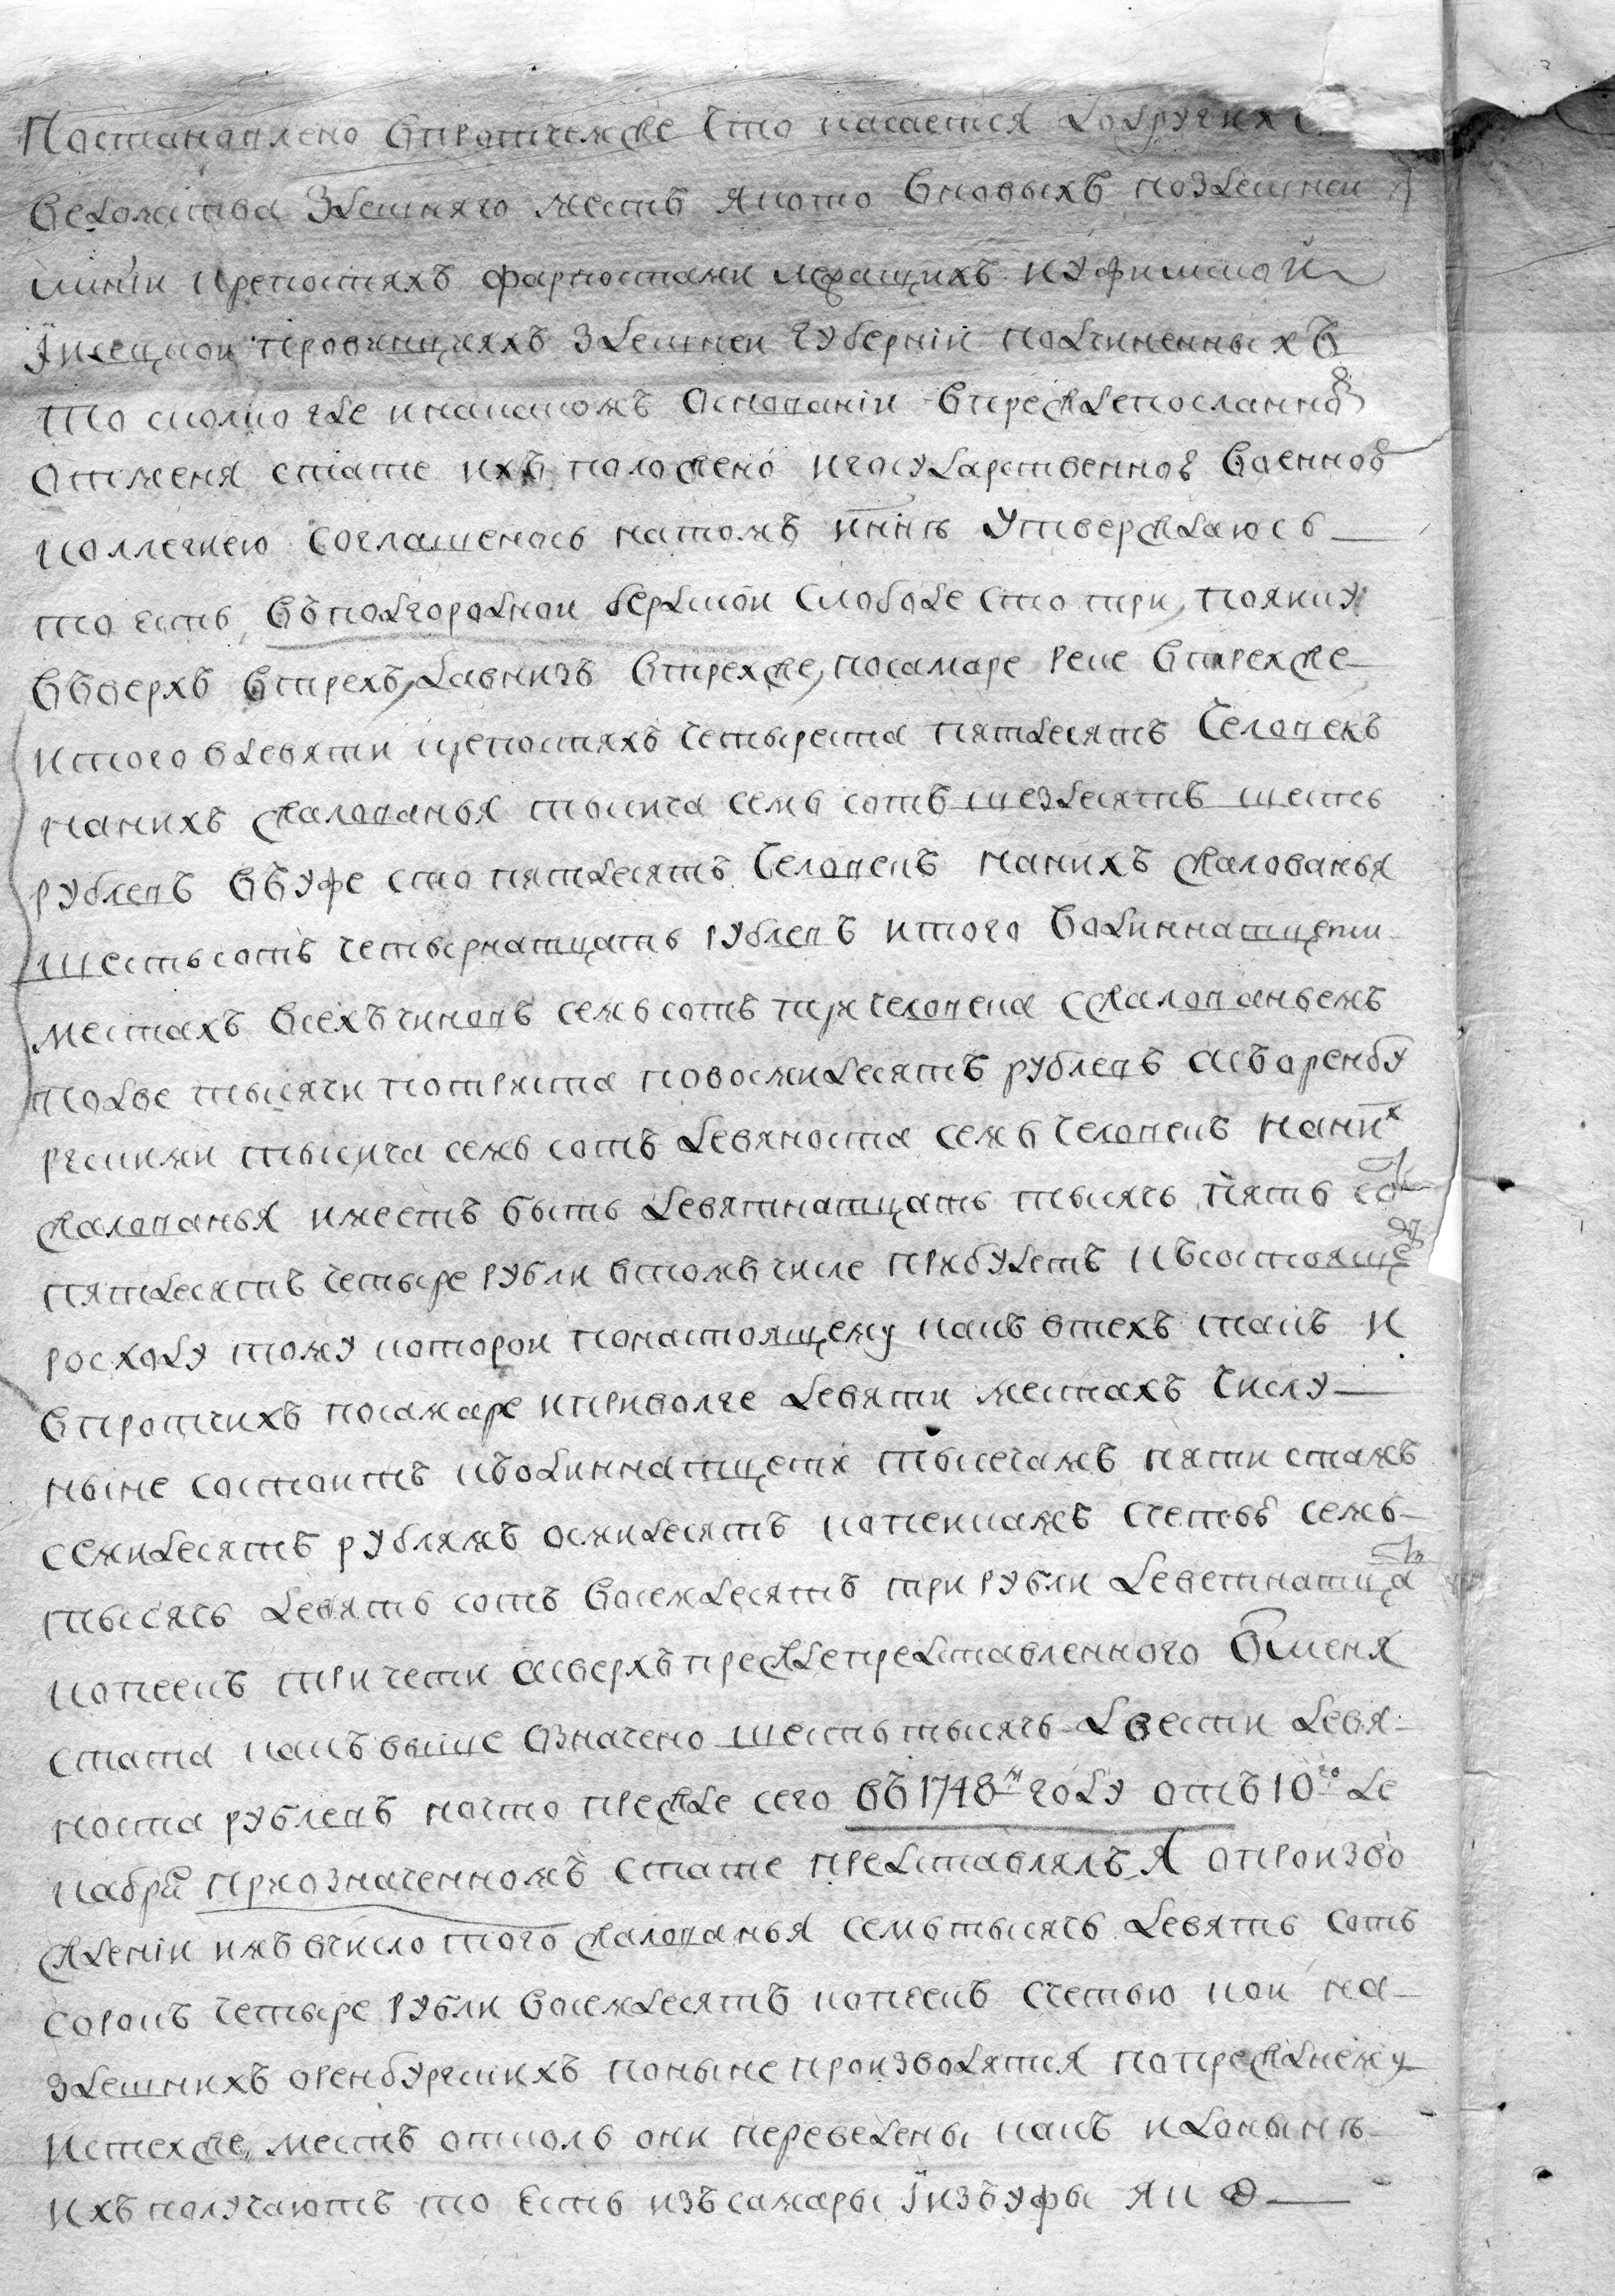 Постановлено впротчемже Что касается додругих
ведомства Здешняго местъ Якото вновыхъ поЗдешней
линіи крепостяхъ фарпостами лежащихъ иУфимской
Iисецкой провинцияхъ Здешней Губерніи подчиненныхъ
то сколко где инакакомъ Основаніи впреждепосланном
Отменя стате ихъ положено игосударственною военною
коллегиею соглашенось натомъ инне Утверждаюсь
то есть въподгородной бердской слободе сто три, пояику
въверхъ втрехъ, давнизъ втрехже, посамаре реке втрехже
итого вдевяти крепостяхъ Четыреста пятдесятъ Человекъ
нанихъ жалованья тысяча семь сотъ шездесятъ шесть
рублевъ въУфе сто пятдесятъ Человекъ нанихъ жалованья
шестьсотъ четырнатцать рублевъ итого водиннатцети
местахъ всехъчиновъ семьсотъ три человека сжалованьемъ
подве тысячи потриста повосмидесятъ рублевъ асъоренбу
ргскими тысяча семь сотъ девяноста семь человекъ наних
жалованья имеетъ быть девятнатцать тысячь пять сотъ
пятдесятъ четыре рубли втомъ числе прибудетъ късостояще
росходу тому которой понастоящему какъ втехъ такъ и
впротчихъ посамаре иприволге девяти местахъ Числу
ныне состоитъ къодиннатцети тысечамъ пяти стамъ
семидесятъ рублямъ осмидесятъ копейкамъ счетью семь
тысячь девять сотъ восемдесятъ три рубли деветнатцать
копеекъ тричети асверхъпреждепредставленного отменя
стата какъвыше Означено шесть тысячь двести девя
носта рублевъ начто прежде сего въ1748м году отъ10го де
кабря приозначенномъ стате представлялъ Я опроизво
жденіи имъ вчисло того жалованья семь тысячь девять сотъ
сорокъ четыре рубли восемдесятъ копеекъ счетью кои на
здешнихъ оренбургскихъ поныне производятся попрежднему
истехже местъ отколь они переведены какъ идоныне
ихъполучаютъ то есть изъсамары Iизъуфы